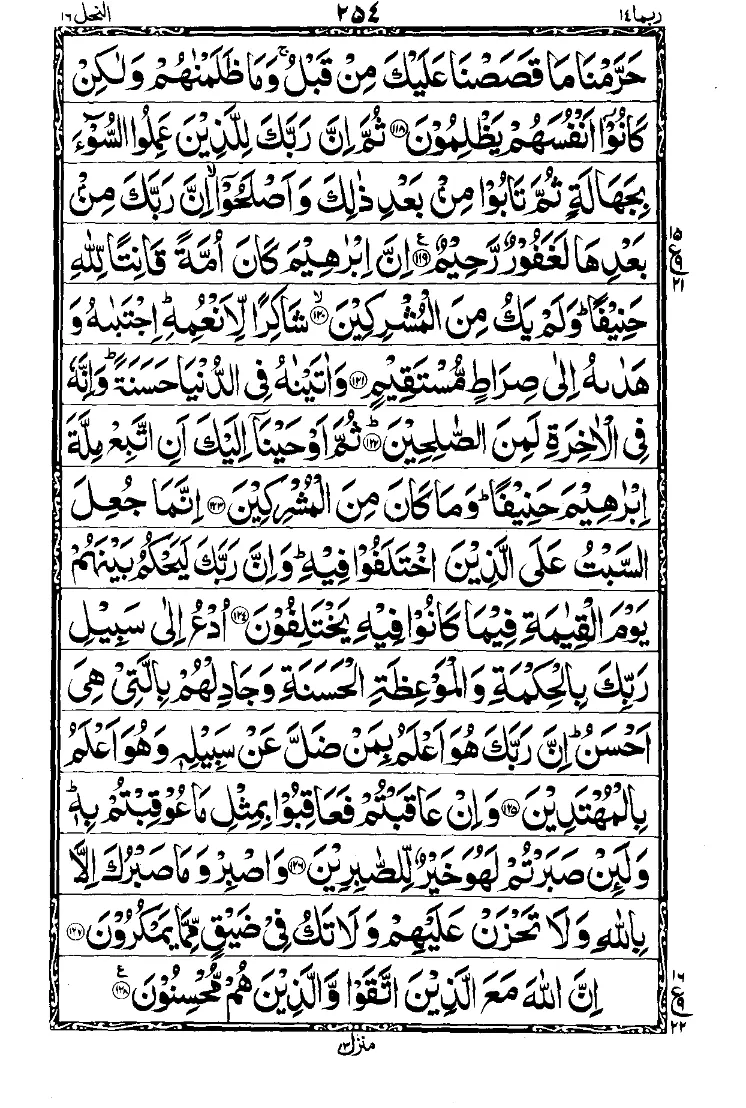 ربما ١٤ ٢٥٤ النحل ١٦
حَرَّمْنَا مَا قَصَصْنَا عَلَيْكَ مِنْ قَبْلُ ۚ وَمَا ظَلَمْنٰهُمْ وَلٰكِنْ
كَانُوْٓا اَنْفُسَهُمْ يَظْلِمُوْنَ ﴿١١٨﴾ ثُمَّ اِنَّ رَبَّكَ لِلَّذِيْنَ عَمِلُوا السُّوْٓءَ
بِجَهَالَةٍ ثُمَّ تَابُوْا مِنْۢ بَعْدِ ذٰلِكَ وَاَصْلَحُوْٓا ۙ اِنَّ رَبَّكَ مِنْۢ
بَعْدِهَا لَغَفُوْرٌ رَّحِيْمٌ ﴿١١٩﴾ ع اِنَّ اِبْرٰهِيْمَ كَانَ اُمَّةً قَانِتًا لِّلّٰهِ
١٥ ع ٢١
حَنِيْفًا ؕ وَلَمْ يَكُ مِنَ الْمُشْرِكِيْنَ ﴿١٢٠﴾ ۙ شَاكِرًا لِّاَنْعُمِهٖ ؕ اِجْتَبٰىهُ وَ
هَدٰىهُ اِلٰى صِرَاطٍ مُّسْتَقِيْمٍ ﴿١٢١﴾ وَاٰتَيْنٰهُ فِى الدُّنْيَا حَسَنَةً ؕ وَاِنَّهٗ
فِى الْاٰخِرَةِ لَمِنَ الصّٰلِحِيْنَ ﴿١٢٢﴾ ؕ ثُمَّ اَوْحَيْنَآ اِلَيْكَ اَنِ اتَّبِعْ مِلَّةَ
اِبْرٰهِيْمَ حَنِيْفًا ؕ وَمَا كَانَ مِنَ الْمُشْرِكِيْنَ ﴿١٢٣﴾ اِنَّمَا جُعِلَ
السَّبْتُ عَلَى الَّذِيْنَ اخْتَلَفُوْا فِيْهِ ؕ وَاِنَّ رَبَّكَ لَيَحْكُمُ بَيْنَهُمْ
يَوْمَ الْقِيٰمَةِ فِيْمَا كَانُوْا فِيْهِ يَخْتَلِفُوْنَ ﴿١٢٤﴾ اُدْعُ اِلٰى سَبِيْلِ
رَبِّكَ بِالْحِكْمَةِ وَالْمَوْعِظَةِ الْحَسَنَةِ وَجَادِلْهُمْ بِالَّتِىْ هِىَ
اَحْسَنُ ؕ اِنَّ رَبَّكَ هُوَ اَعْلَمُ بِمَنْ ضَلَّ عَنْ سَبِيْلِهٖ وَهُوَ اَعْلَمُ
بِالْمُهْتَدِيْنَ ﴿١٢٥﴾ وَاِنْ عَاقَبْتُمْ فَعَاقِبُوْا بِمِثْلِ مَا عُوْقِبْتُمْ بِهٖ ؕ
وَلَئِنْ صَبَرْتُمْ لَهُوَ خَيْرٌ لِّلصّٰبِرِيْنَ ﴿١٢٦﴾ وَاصْبِرْ وَمَا صَبْرُكَ اِلَّا
بِاللّٰهِ وَلَا تَحْزَنْ عَلَيْهِمْ وَلَا تَكُ فِىْ ضَيْقٍ مِّمَّا يَمْكُرُوْنَ ﴿١٢٧﴾
اِنَّ اللّٰهَ مَعَ الَّذِيْنَ اتَّقَوْا وَّالَّذِيْنَ هُمْ مُّحْسِنُوْنَ ﴿١٢٨﴾ ع
١٦ ع ٢٢
منزل ٣